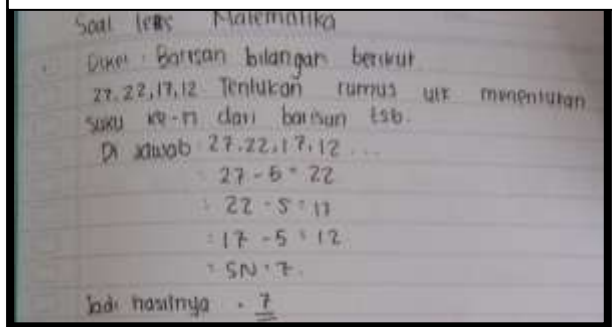 Soal tes Matematika
Diket : Barisan bilangan berikut
27, 22, 17, 12 Tentukan rumus utk menentukan
suku ke-n dari barisan tsb.
Di jawab 27, 22, 17, 12 ...
: 27 - 5 = 22
: 22 - 5 = 17
: 17 - 5 = 12
: 5N + 7.
Jadi hasilnya = 7